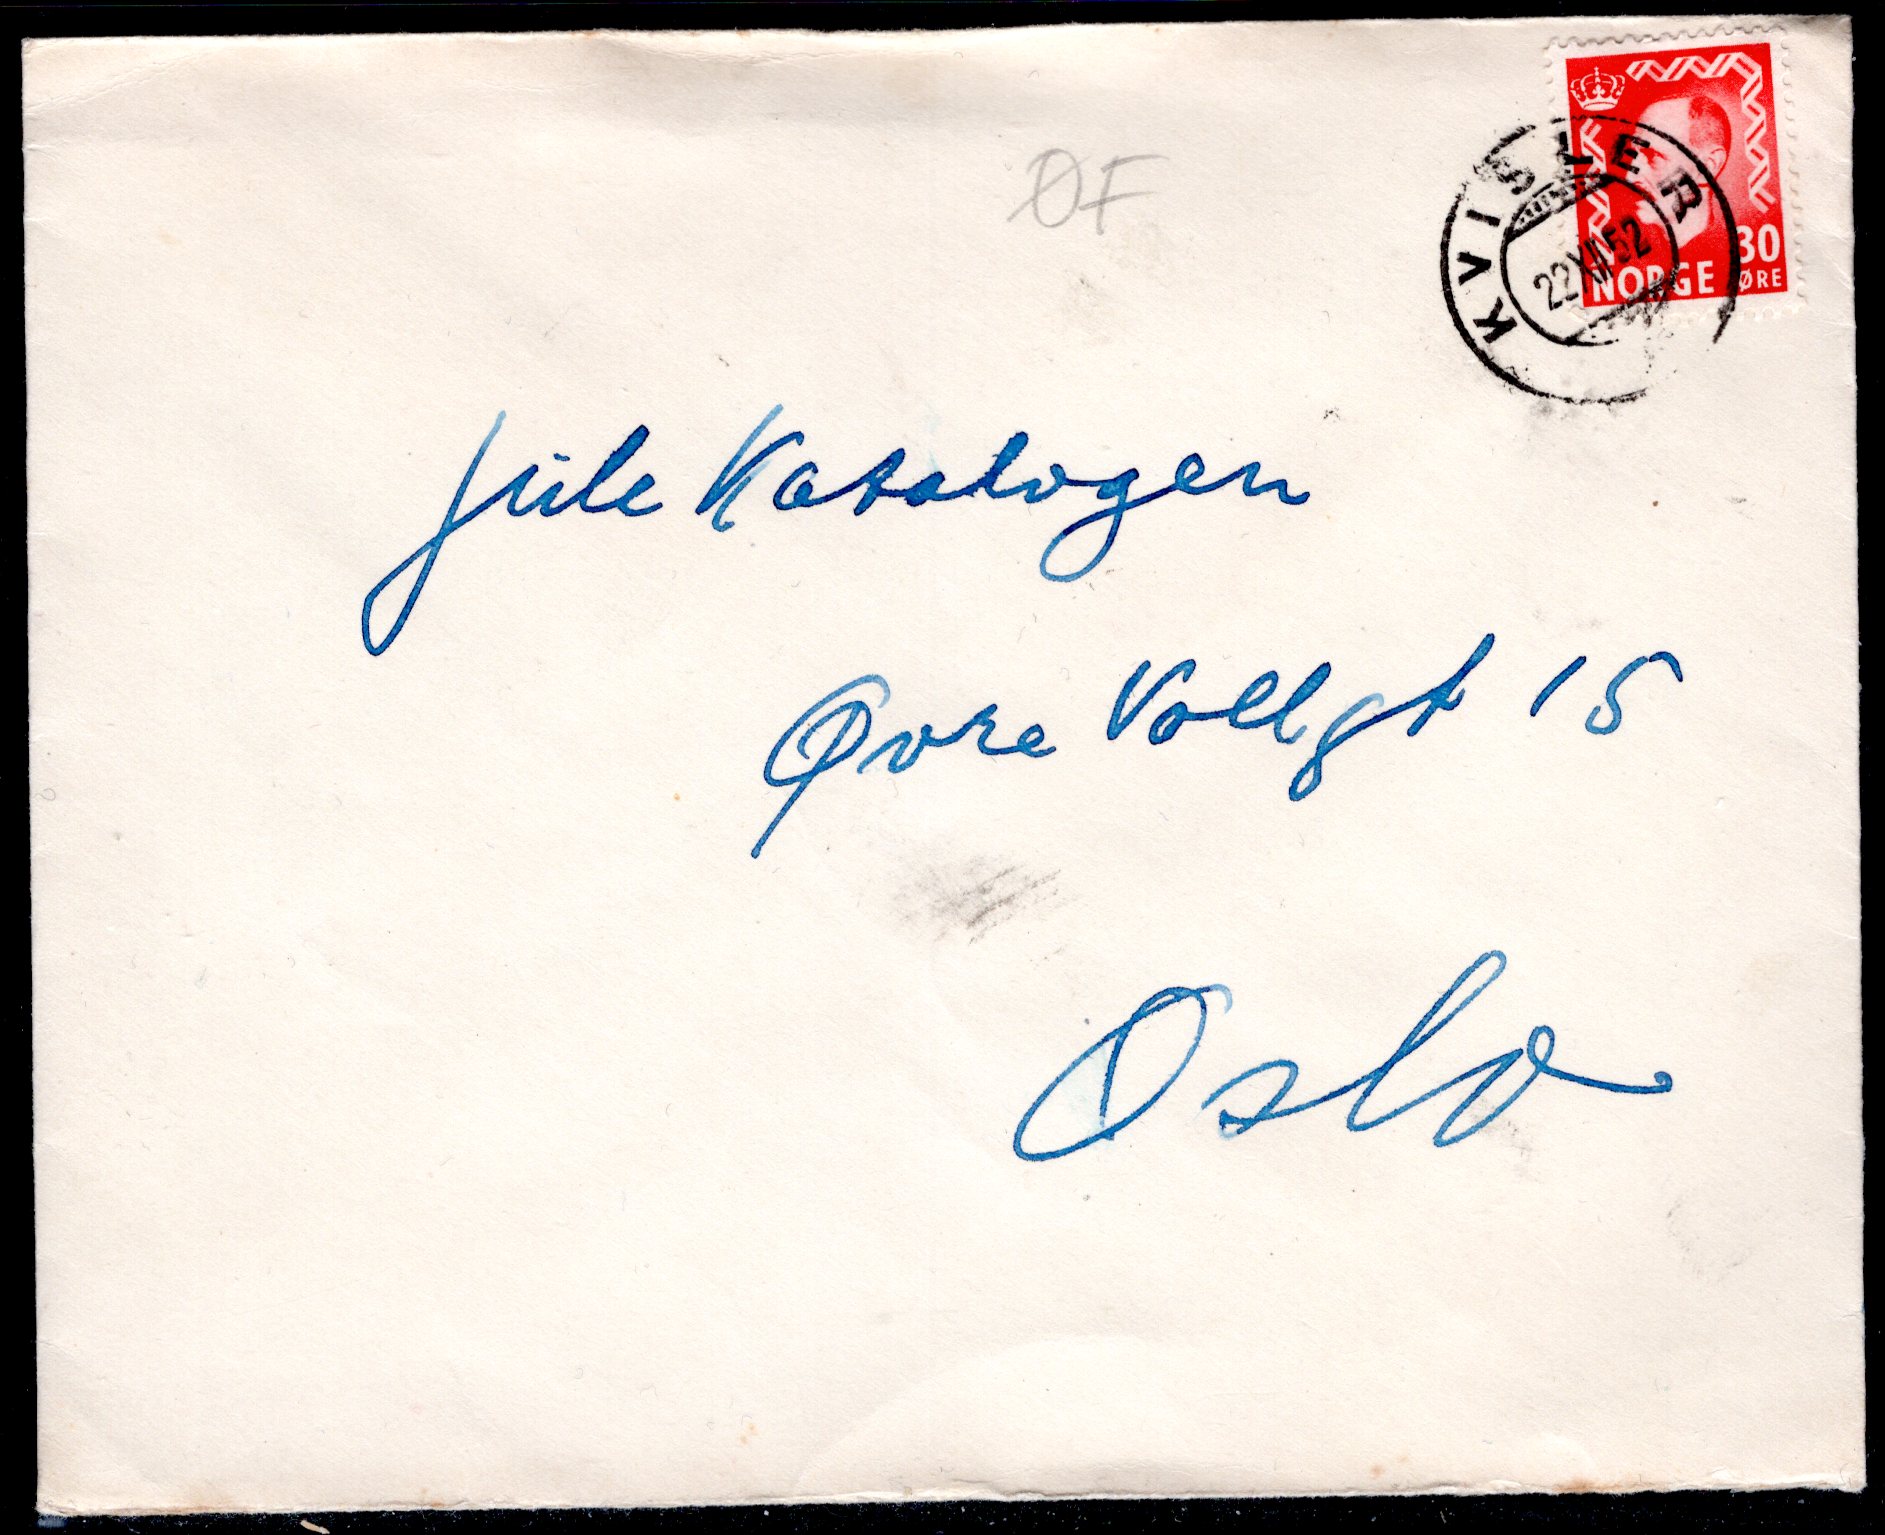 ØF
30
NORGE ØRE
KVISLER
22 XII 52
Jule Katalogen
Øvre Vollgt 15
Oslo